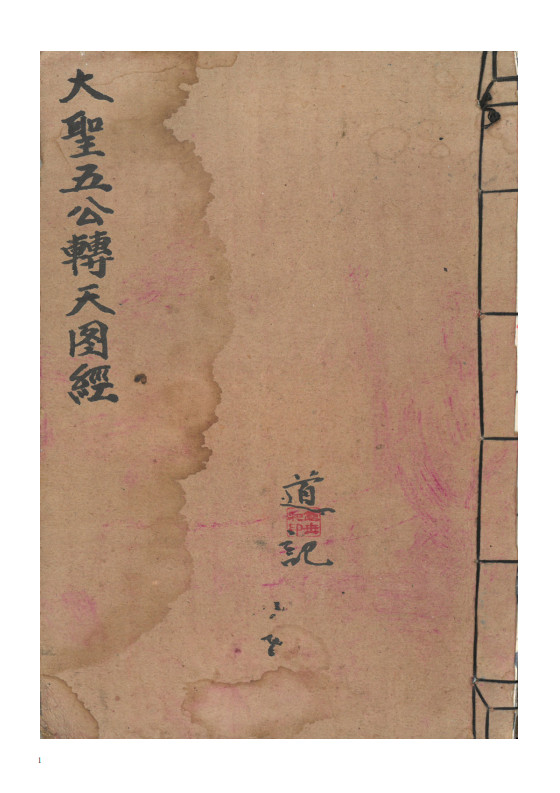 大聖五公轉天图經
道記
1